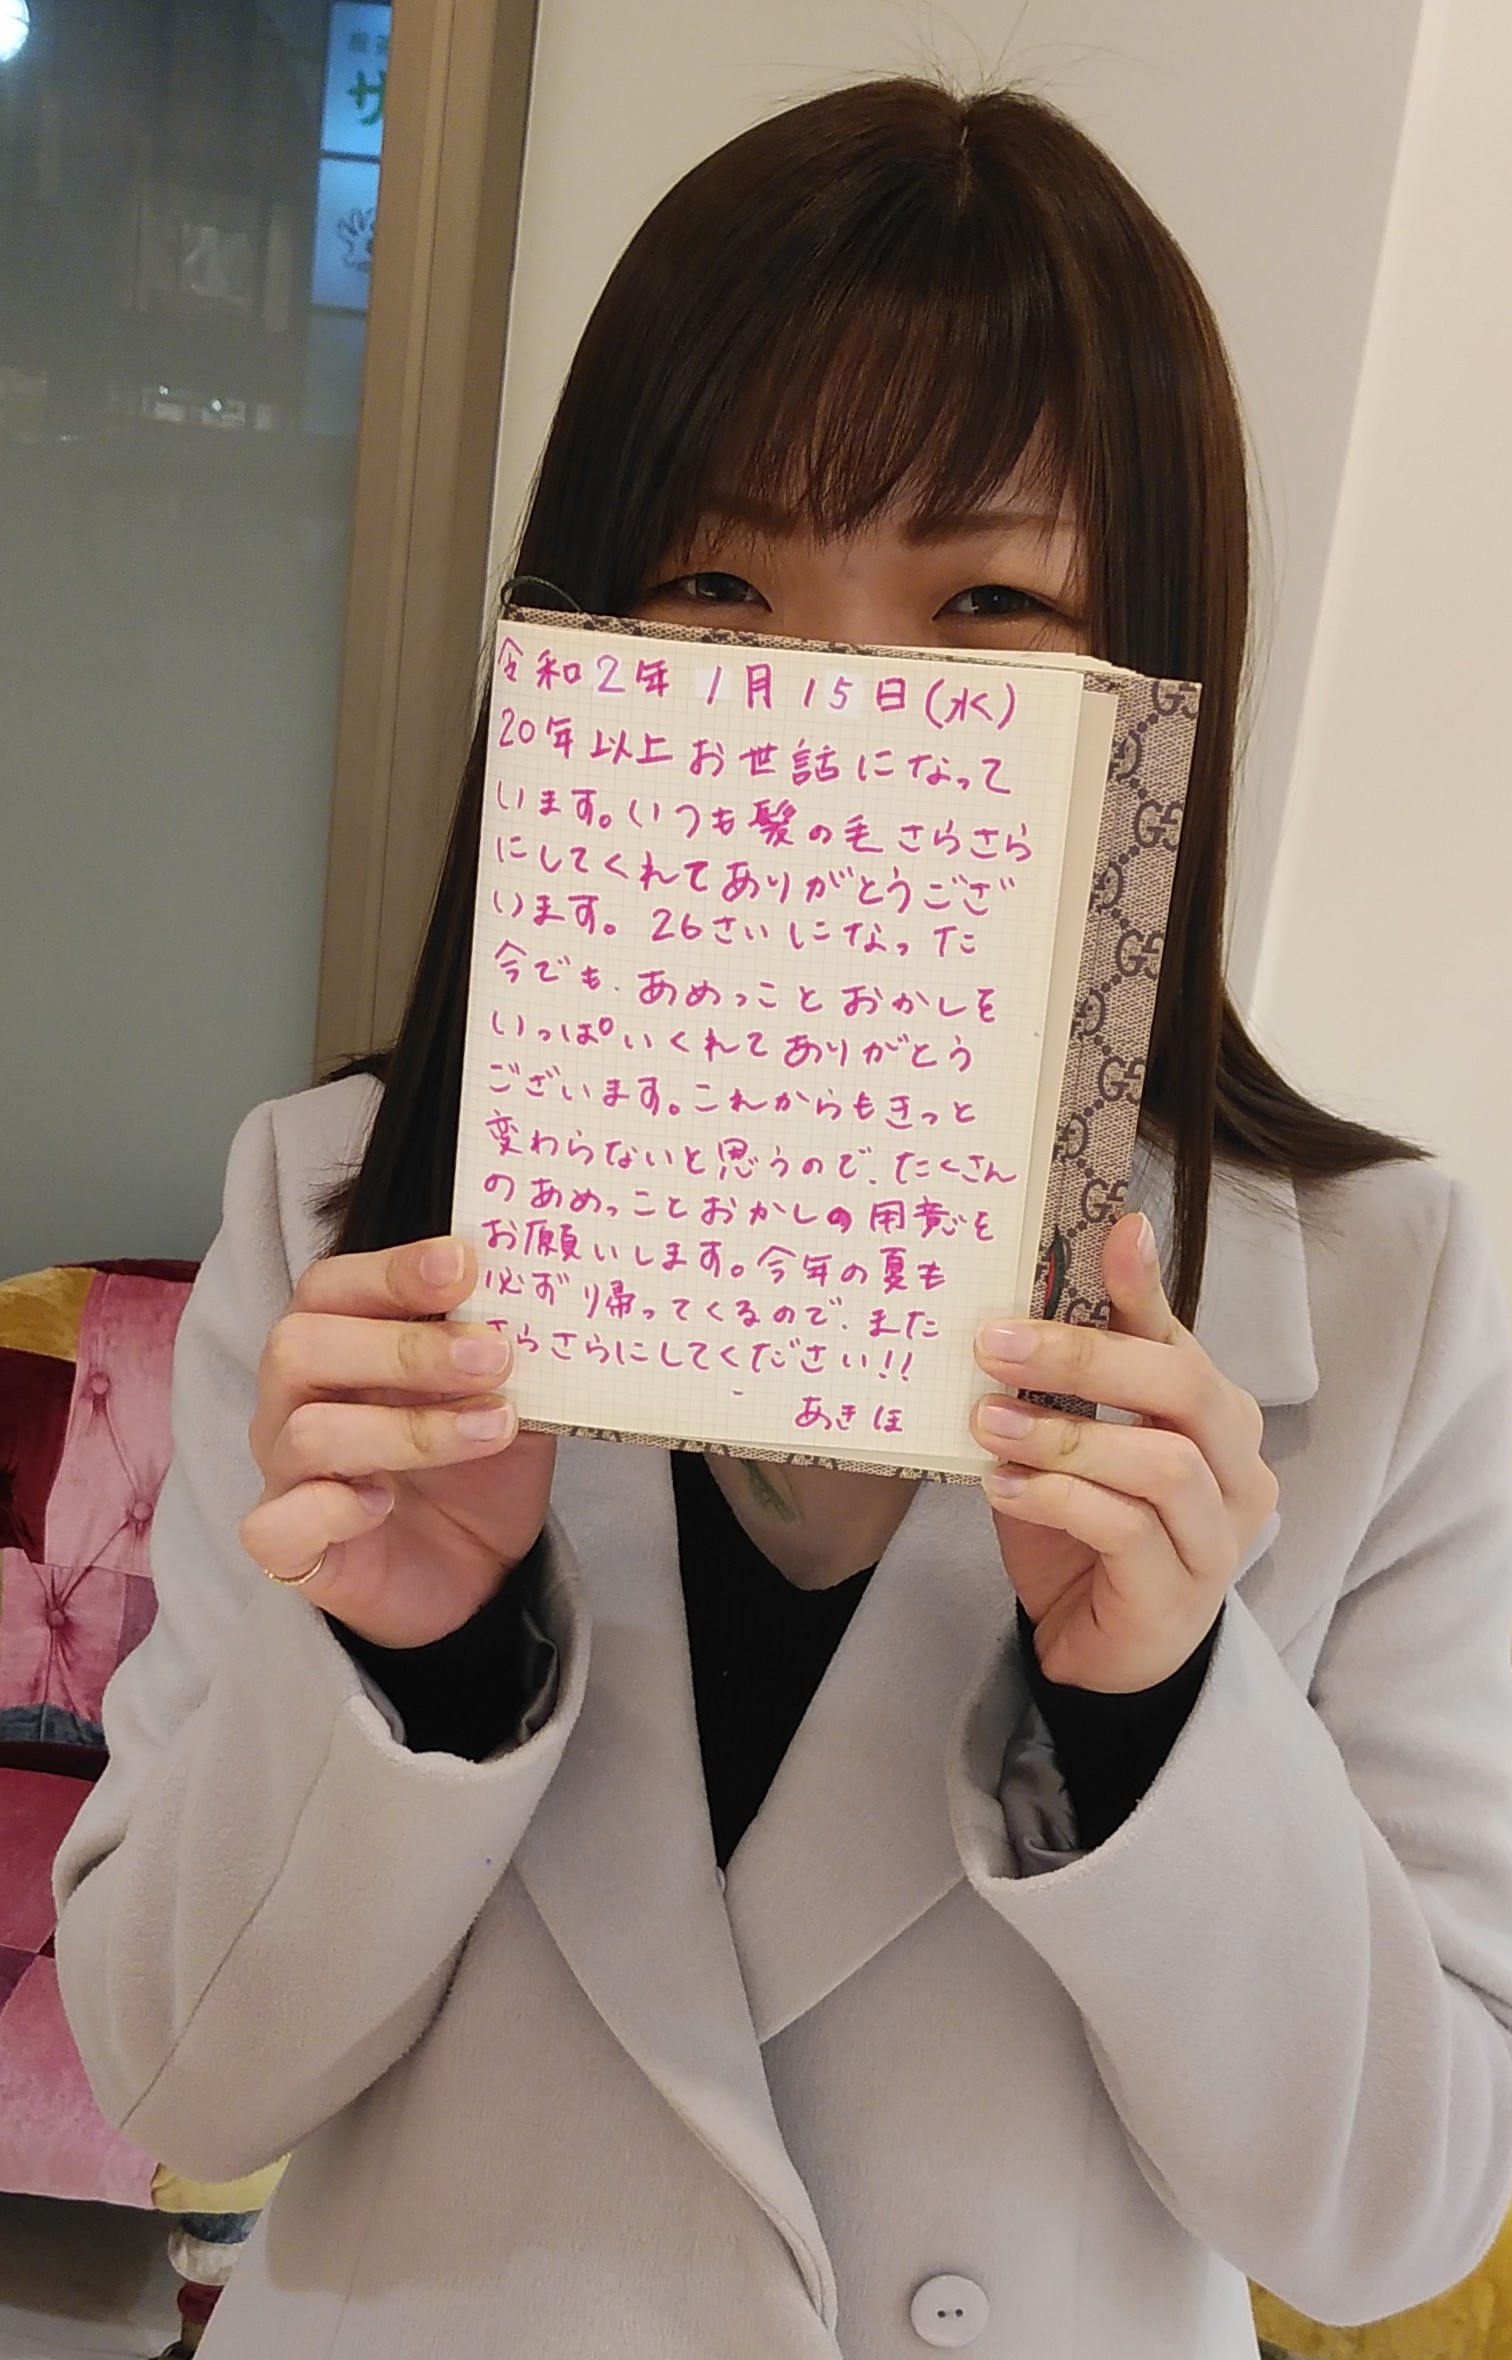 サ
令和2年 1月 15日(水)
20年以上お世話になって
います。いつも髪の毛さらさら
にしてくれてありがとうござ
います。26さいになった
今でも、あめっことおかしを
いっぱいくれてありがとう
ございます。これからもきっと
変わらないと思うので、たくさん
のあめっことおかしの用意を
お願いします。今年の夏も
必ず帰ってくるので、また
さらさらにしてください!!
あきほ